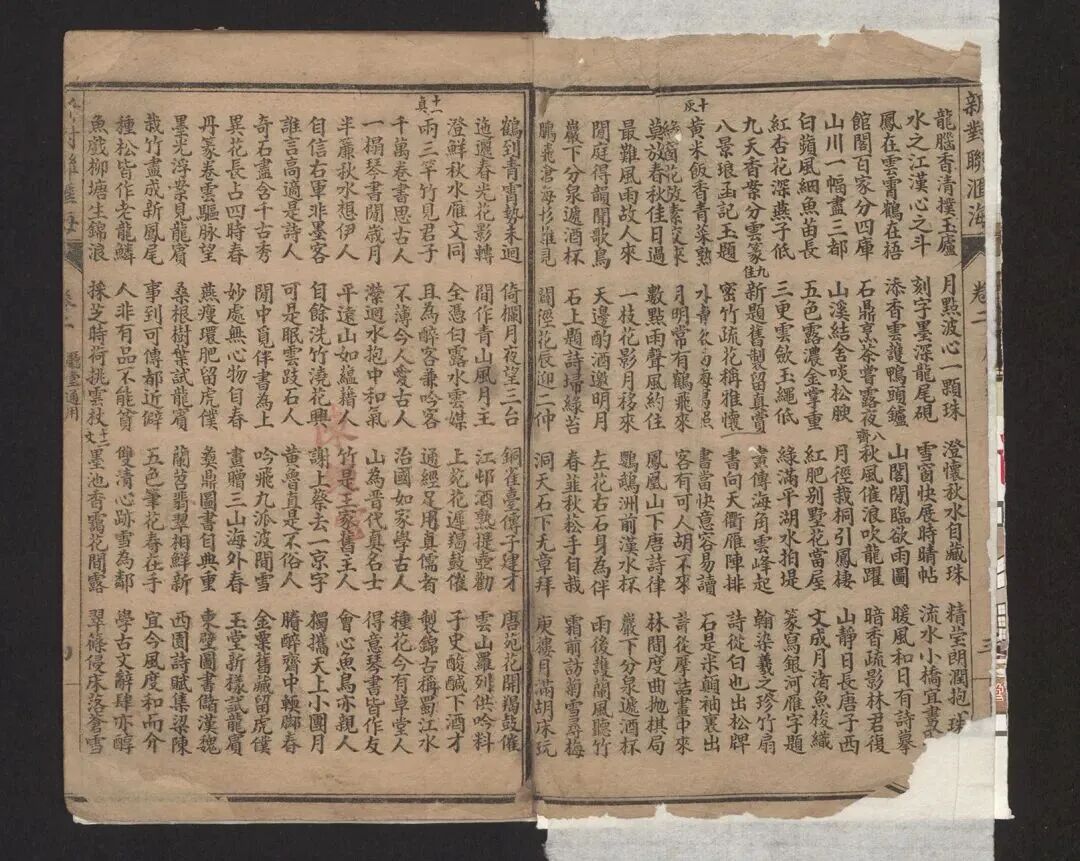 新對聯滙海 卷二 三
龍腦香清撲玉廬 月點波心一顆珠 澄懷秋水自藏珠 精瑩朗潤抱一珠
水之江漢心之斗 刻字墨深龍尾硯 雪窗快展時晴帖 流水小橋宜畫
鳳在雲霄鶴在梧 添香雲護鴨頭鑪 山閣閒臨欲雨圖 暖風和日有詩摹
館閣百家分四庫 石鼎烹茶嘗露夜 八齊 秋風催浪吹龍躍 暗香疏影林君復
山川一幅畫三都 山溪結舍啖松腴 月徑栽桐引鳳棲 山靜日長唐子西
白蘋風細魚苗長 五色露濃金掌重 紅肥別墅花當屋 文成月渚魚梭織
紅杏花深燕子低 三更雲斂玉繩低 綠滿平湖水拍堤 篆寫銀河雁字題
九天香案分雲篆 九佳 新題舊製留真賞 黃傳海角雲峰起 翰染羲之珍竹扇
八景琅函記玉題 密竹疏花稱雅懷 書向天衢雁陣排 詩從白也出松牌
十灰 黃米飯香青菜熟 書當快意容易讀 石是米顛袖裏出
綠窗花放 月明常有鶴飛來 客有可人胡不來 詩從摩詰畫中來
莫放春秋佳日過 數點雨聲風約住 鳳凰山下唐詩律 林間度曲拋棋局
最難風雨故人來 一枝花影月移來 鸚鵡洲前漢水杯 巖下分泉遞酒杯
閒庭得韻聞歌鳥 天邊酌酒邀明月 左花右石身為伴 雨後護蘭風聽竹
巖下分泉遞酒杯 石上題詩埽綠苔 春韮秋松手自栽 霜前訪菊雪尋梅
鵬 滄海 閒徑花辰迎二仲 洞天石下无章拜 庚樓月滿胡床玩
鶴到青霄勢未迴 倚欄月夜望三台 銅雀臺傳子建才 唐苑花開羯鼓催
迤邐春光花影轉 間作青山風月主 江邨酒熟提壺勸 雲山羅列供吟料
澄鮮秋水雁文同 全憑白露水雲媒 上苑花遲羯鼓催 子史酸鹹下酒才
十一真 兩三竿竹見君子 且為醉客兼吟客 通經足用真儒者 製錦古稱蜀江水
千萬卷書思古人 不薄今人愛古人 治國如家學古人 種花今有草堂人
一榻琴書閒歲月 瀠迴水抱中和氣 山為晉代真名士 得意琴書皆作友
半簾秋水想伊人 平遠山如蘊藉人 竹是王家舊主人 會心魚鳥亦親人
自信右軍非墨客 自餘洗竹澆花興 謝上蔡去一京字 獨攜天上小團月
誰言高適是詩人 可是眠雲跂石人 黄魯直是不俗人 賸醉齋中輭腳春
奇石盡含千古秀 閒中覓伴書為上 吟飛九派波間雪 金粟舊藏留虎僕
異花長占四時春 妙處無心物自春 畫贈三山海外春 玉堂新樣試龍賓
丹篆卷雲驅脉望 燕瘦環肥留虎僕 彝鼎圖書自典重 東壁圖書儲漢魏
墨光浮案見龍賓 桑根樹葉試龍賓 蘭苕翡翠相鮮新 西園詩賦集梁陳
栽竹盡成新鳳尾 事到可傳都近癖 五色筆花春在手 宜今風度和而介
種松皆作老龍鱗 人非有品不能貧 雙清心跡雪為鄰 學古文辭肆亦醇
魚戲柳塘生錦浪 採芝時荷挑雲杖 十二文 墨池香靄花間露 翠篠侵床落蒼雪
卷二 廳堂通用